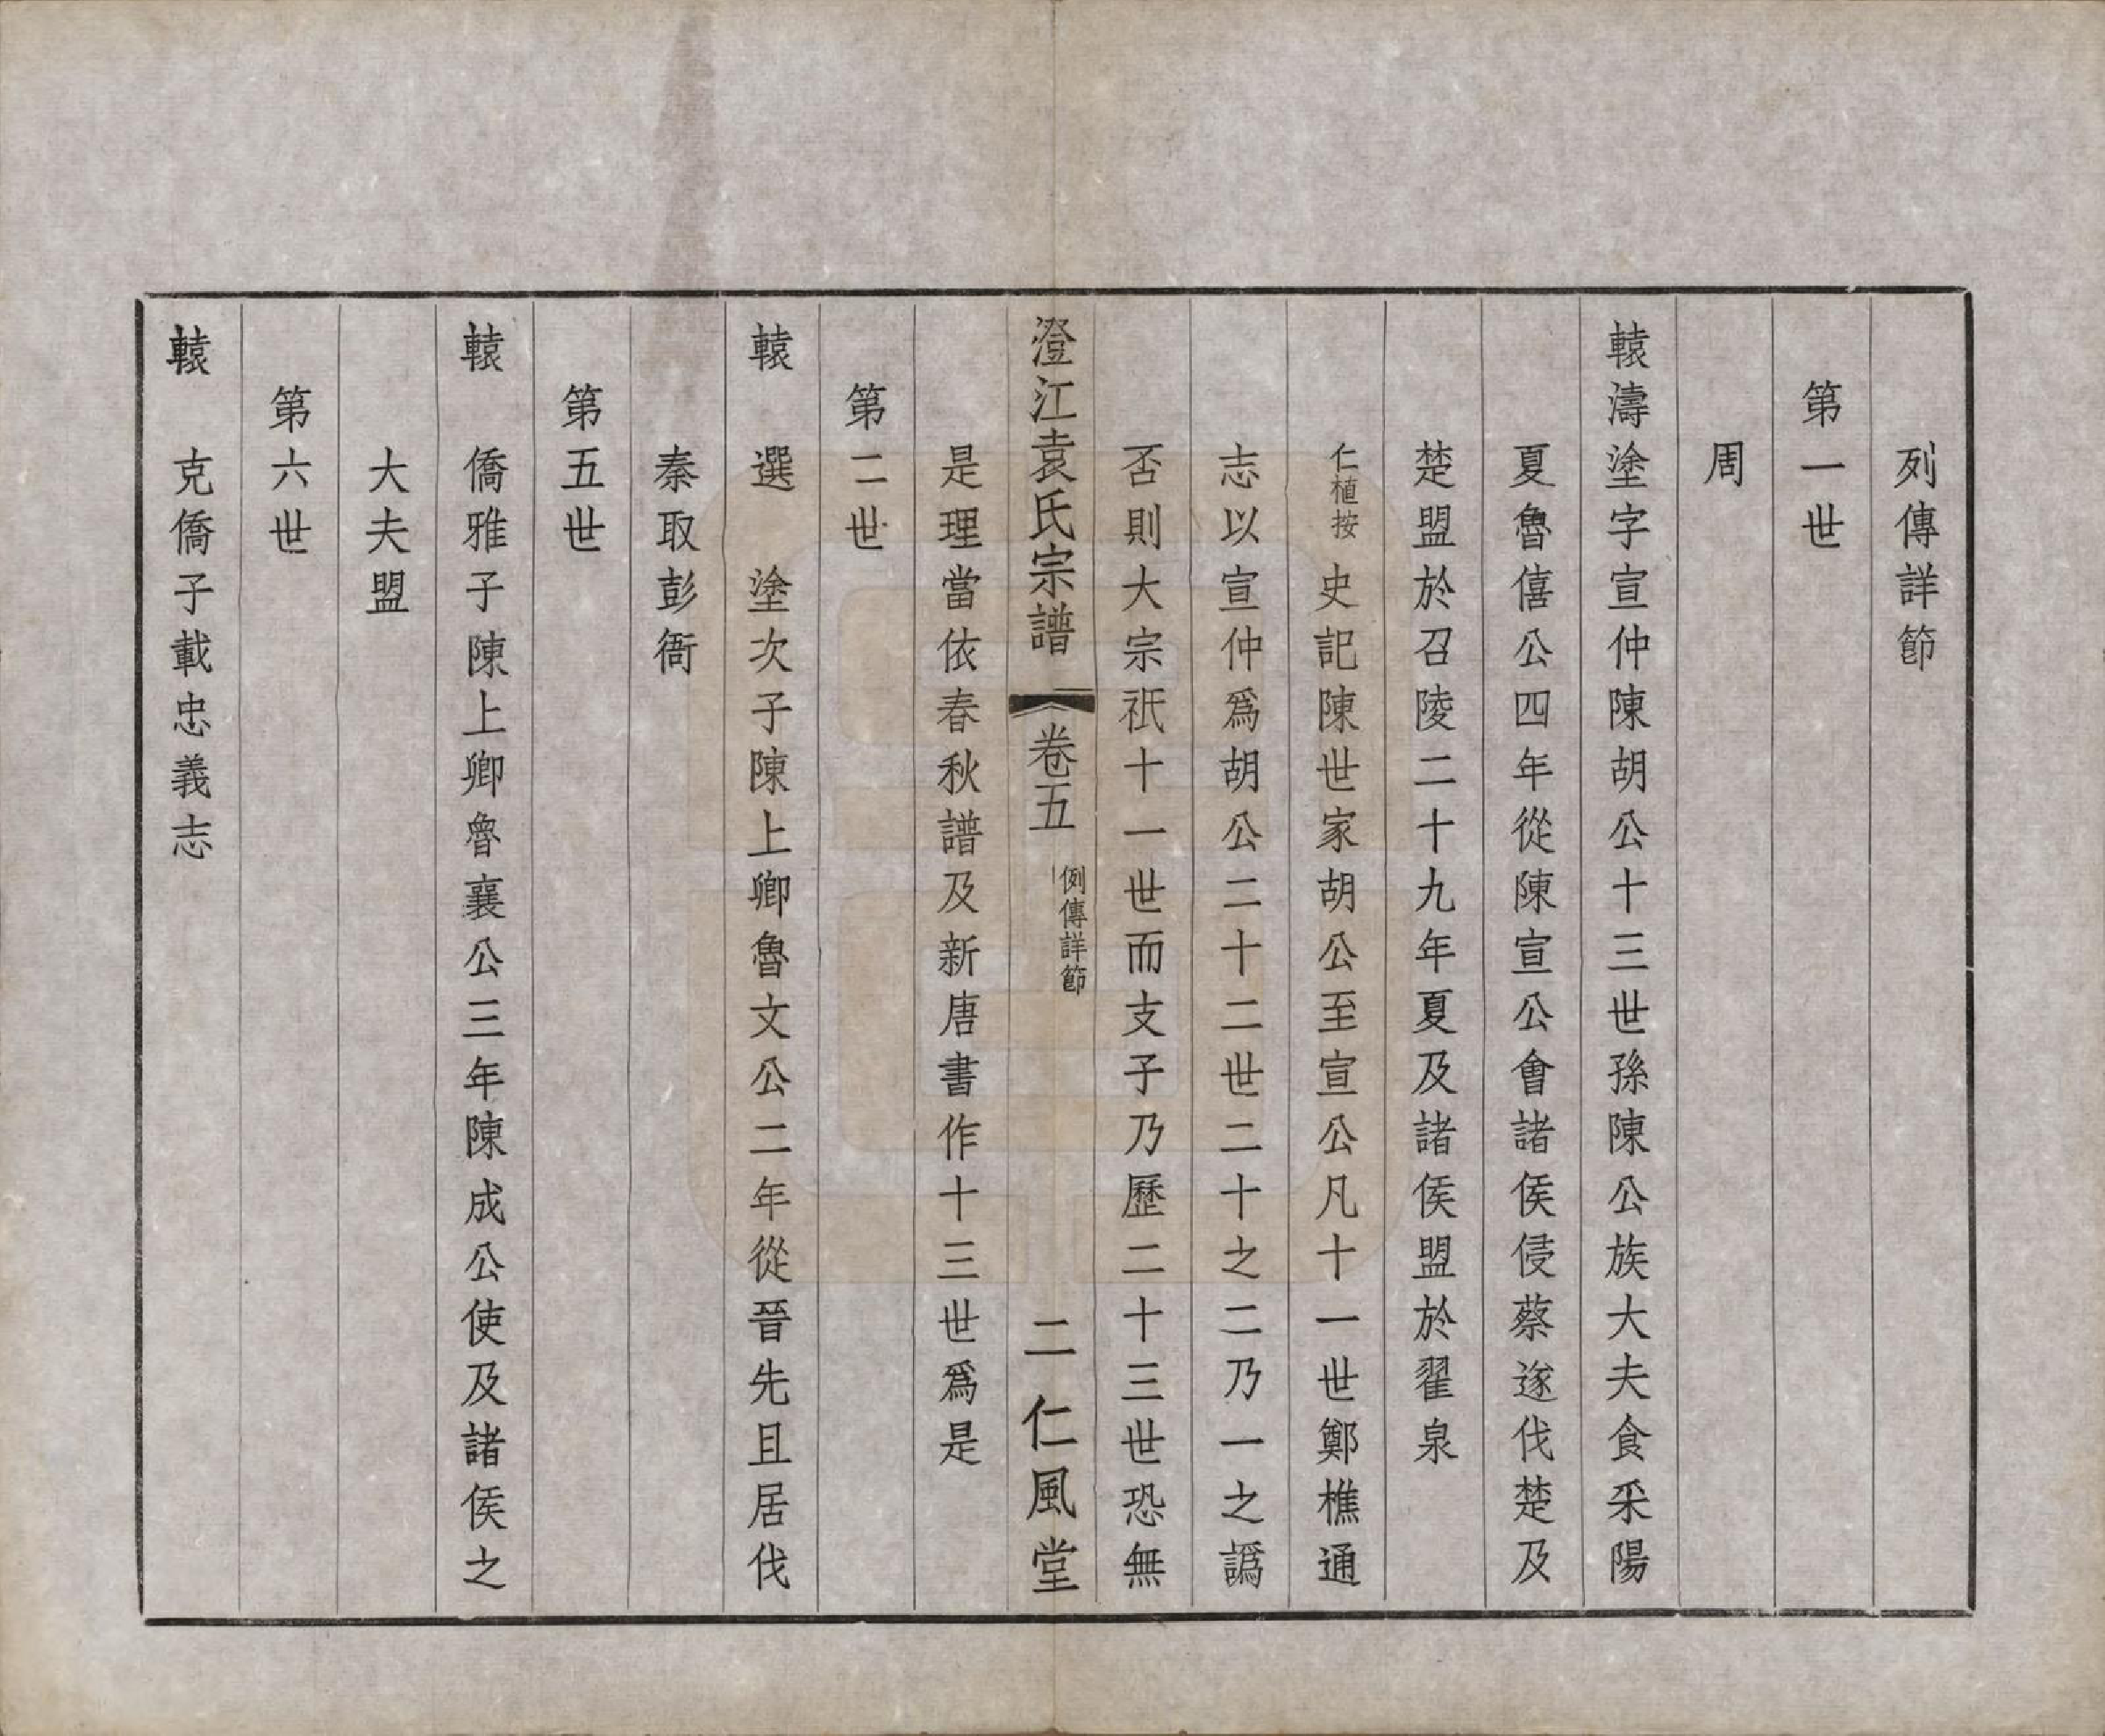 列傳詳節
第一世
周
轅濤塗字宣仲陳胡公十三世孫陳公族大夫食采陽
夏魯僖公四年從陳宣公會諸侯侵蔡遂伐楚及
楚盟於召陵二十九年夏及諸侯盟於翟泉
仁植按 史記陳世家胡公至宣公凡十一世鄭樵通
志以宣仲爲胡公二十二世二十之二乃一之譌
否則大宗祇十一世而支子乃歷二十三世恐無
是理當依春秋譜及新唐書作十三世爲是
澄江袁氏宗譜 卷五 例傳詳節 二 仁風堂
第二世
轅 選 塗次子陳上卿魯文公二年從晉先且居伐
秦取彭衙
第五世
轅 僑雅子陳上卿魯襄公三年陳成公使及諸侯之
大夫盟
第六世
轅 克僑子載忠義志